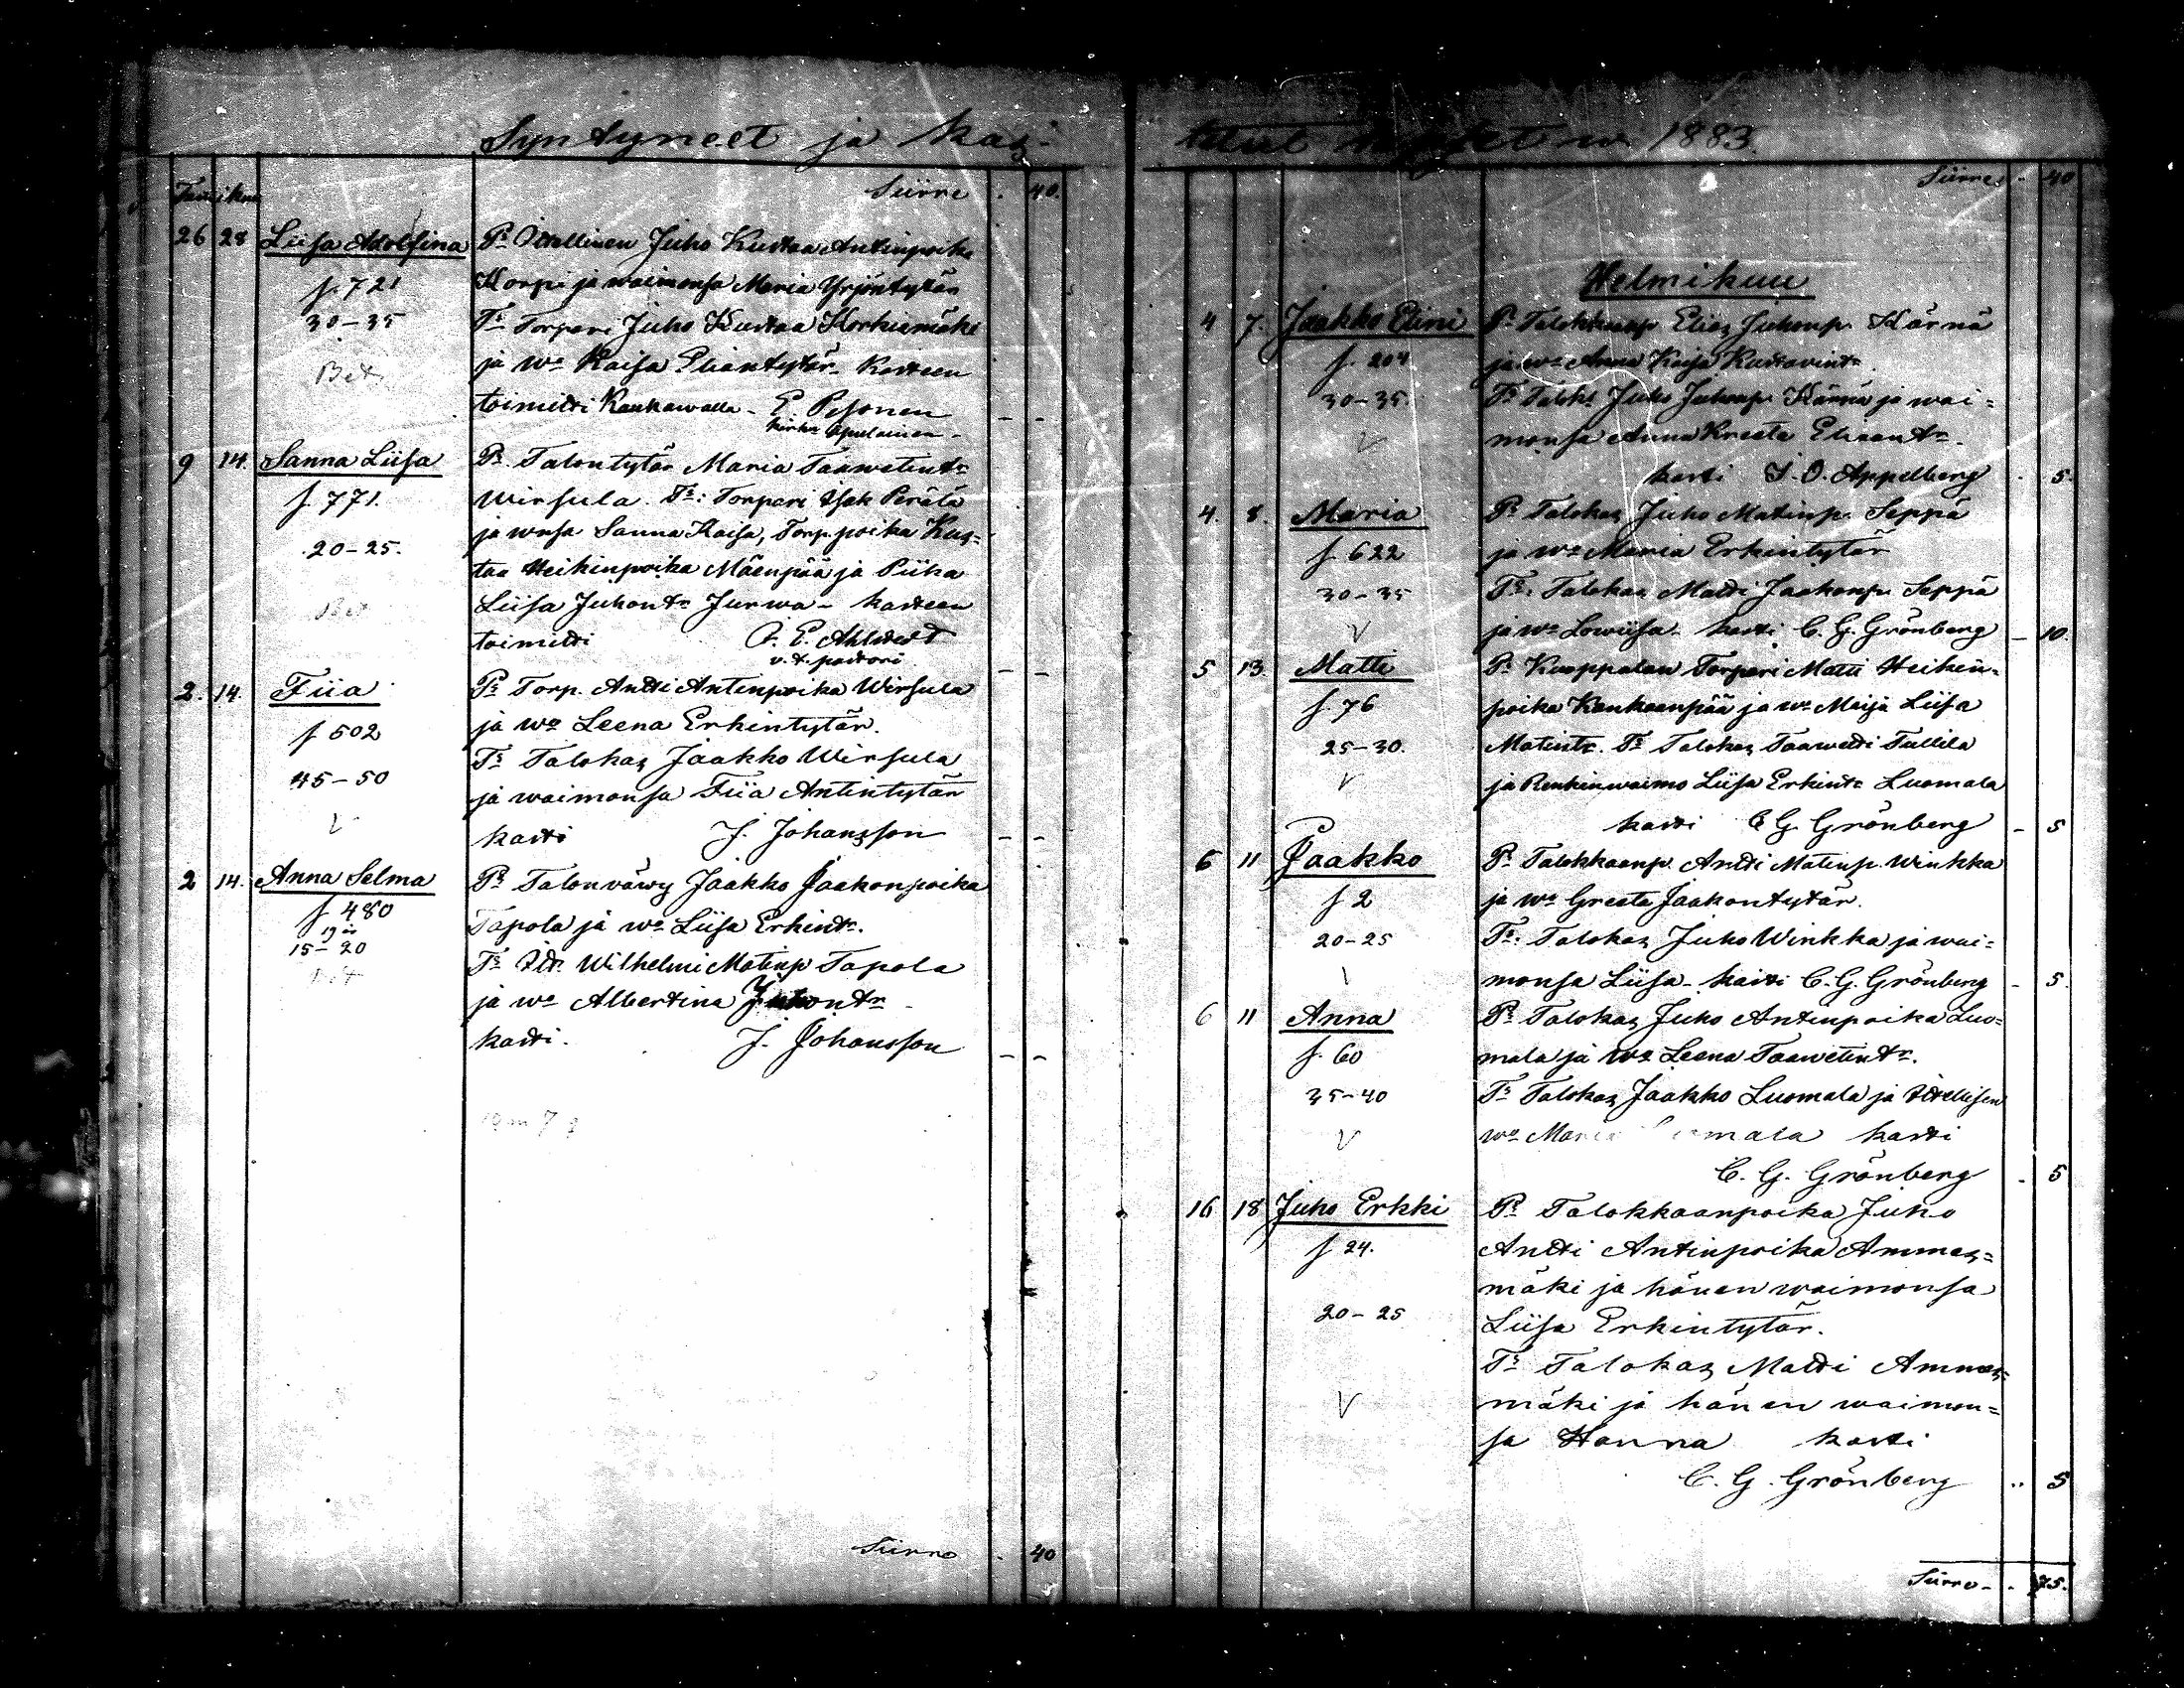 Syntyneet ja kas-
tetut w. 1883.
Tammikuu
Siirre . 40.
26 28 Liisa Adolfina Pr Itellinen Juho Kustaa Antinpoika
f. 721 Korpi ja waimonsa Maria Yrjöntytär
30-35 Tr Torpari Juho Kustaa Korkiamäki
Bet ja wa Kaisa Eliantytär Kasteen
toimitti Kauhawalla - E. Pesonen - -
kirko apulainen -
9 14. Sanna Liisa Pr Talontytär Maria Taawetintr
f. 771. Wirsula. Tr: Torpari Isak Perälä
20-25. ja wnsa Sanna Kaisa, Torp. poika Kus=
taa Heikinpoika Mäenpää ja Piika
Bet Liisa Juhontr Jurwa - kasteen
toimitti A. E. Ahlstedt
v. t. pastori - -
2. 14. Fiia Pr Torp. Antti Antinpoika Wirsula
f 502 ja wa Leena Erkintytär.
45-50 Tr Talokas Jaakko Wirsula
ja waimonsa Fiia Antintytär
V kasti J. Johansson - -
2 14. Anna Selma Pr Talonväwy Jaakko Jaakonpoika
f 480 Tapola ja wa Liisa Erkintr.
19 år
15-20 Tr Itr. Wilhelmi Matinp Tapola
Bet ja wa Albertina Juhontr -
kasti. J. Johansson - -
Siirre . 40
Siirre . 40
Helmikuu
4 7. Jaakko Elini Pr Talokkaanp Elias Juhonp. Kärnä
f. 204 ja wa Anna Kaisa Kustavintr
30-35. Tr Talok. Juho Juhonp. Kärnä ja wai=
V monsa Anna Kreeta Eliantr.
kasti J. O. Appelberg . 5.
4. 8. Maria Pr Talokas Juho Matinp. Seppä
f. 622 ja wa Maria Erkintytär
30-35 Tr. Talokas Matti Jaakonp. Seppä
V ja wa Lowiisa - kasti C. G. Grönberg - 10.
5 13. Matti Pr Torpari Matti Heikin=
f. 76 poika Kankaanpää ja wa Maija Liisa
25-30. Matintr. Tr Talokas Taawetti Tullila
V ja Renkinwaimo Liisa Erkintr Luomala
kasti C G. Grönberg - 5
6 11 Jaakko Pr Talokkaanp. Antti Matinp. Winkka
f 2 ja wa Greeta Jaakontytär.
20-25 Tr. Talokas Juho Winkka ja wai=
V monsa Liisa - kasti C. G. Grönberg - 5.
6 11 Anna Pr Talokas Juho Antinpoika Luo=
f. 60 mala ja wa Leena Taawetintr.
35-40 Tr Talokas Jaakko Luomala ja Itellisen
V wa Maria Luomala kasti
C. G. Grönberg . 5
16 18 Juho Erkki Pr Talokkaanpoika Juho
f 24. Antti Antinpoika Ammes=
mäki ja hänen waimonsa
20-25 Liisa Erkintytär.
Tr Talokas Matti Ammes=
V mäki ja hänen waimon=
sa Hanna kasti
C. G. Grönberg .. 5
Siirre - . 75.